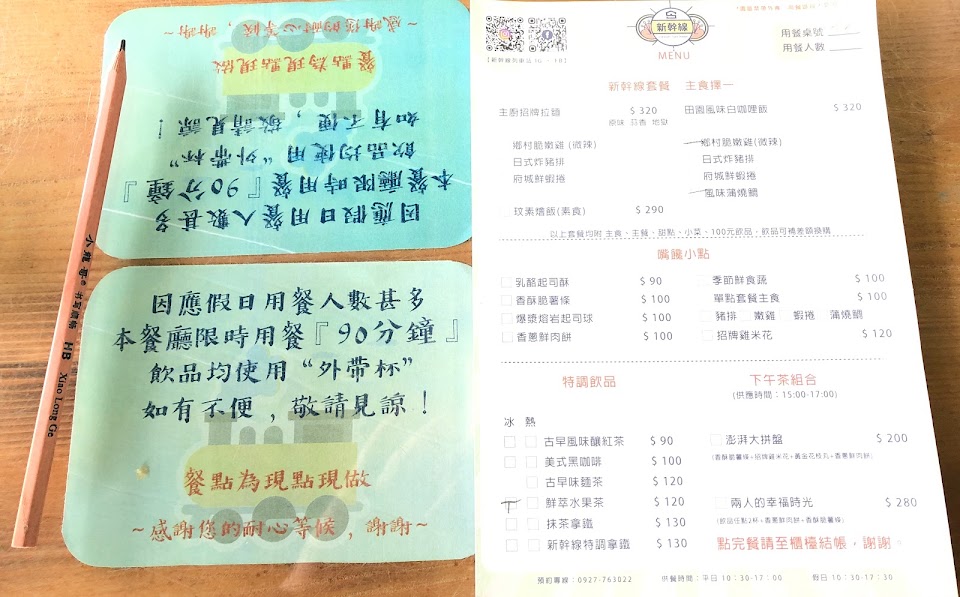 ~感謝您的耐心等候，謝謝~
餐點為現點現做
如有不便，敬請見諒！
飲品均使用“外帶杯”
本餐廳限時用餐『90分鐘』
因應假日用餐人數甚多
小龍哥® 書寫鉛筆 HB Xiao Long Ge
因應假日用餐人數甚多
本餐廳限時用餐『90分鐘』
飲品均使用“外帶杯”
如有不便，敬請見諒！
餐點為現點現做
~感謝您的耐心等候，謝謝~
新幹線
MENU
用餐桌號
用餐人數
新幹線套餐 主食擇一
主廚招牌拉麵 $ 320
原味 蒜香 地獄
鄉村脆嫩雞(微辣)
日式炸豬排
府城鮮蝦捲
田園風味白咖哩飯 $ 320
鄉村脆嫩雞(微辣)
日式炸豬排
府城鮮蝦捲
風味蒲燒鯛
玟素燴飯(素食) $ 290
以上套餐均附 主食、主餐、甜點、小菜、100元飲品，飲品可補差額換購
嘴饞小點
乳酪起司酥 $ 90
香酥脆薯條 $ 100
爆漿熔岩起司球 $ 100
香蔥鮮肉餅 $ 100
季節鮮食蔬 $ 100
單點套餐主食 $ 100
豬排 嫩雞 蝦捲 蒲燒鯛
招牌雞米花 $ 120
特調飲品
冰 熱
古早風味釀紅茶 $ 90
美式黑咖啡 $ 100
古早味麵茶 $ 120
鮮萃水果茶 $ 120
抹茶拿鐵 $ 130
新幹線特調拿鐵 $ 130
下午茶組合
(供應時間：15:00-17:00)
澎湃大拼盤 $ 200
(香酥脆薯條+招牌雞米花+黃金花枝丸+香蔥鮮肉餅)
兩人的幸福時光 $ 280
(飲品任點2杯+香蔥鮮肉餅+香酥脆薯條)
點完餐請至櫃檯結帳，謝謝。
預約專線：0927-763022 供餐時間：平日 10：30-17：00 假日 10：30-17：30